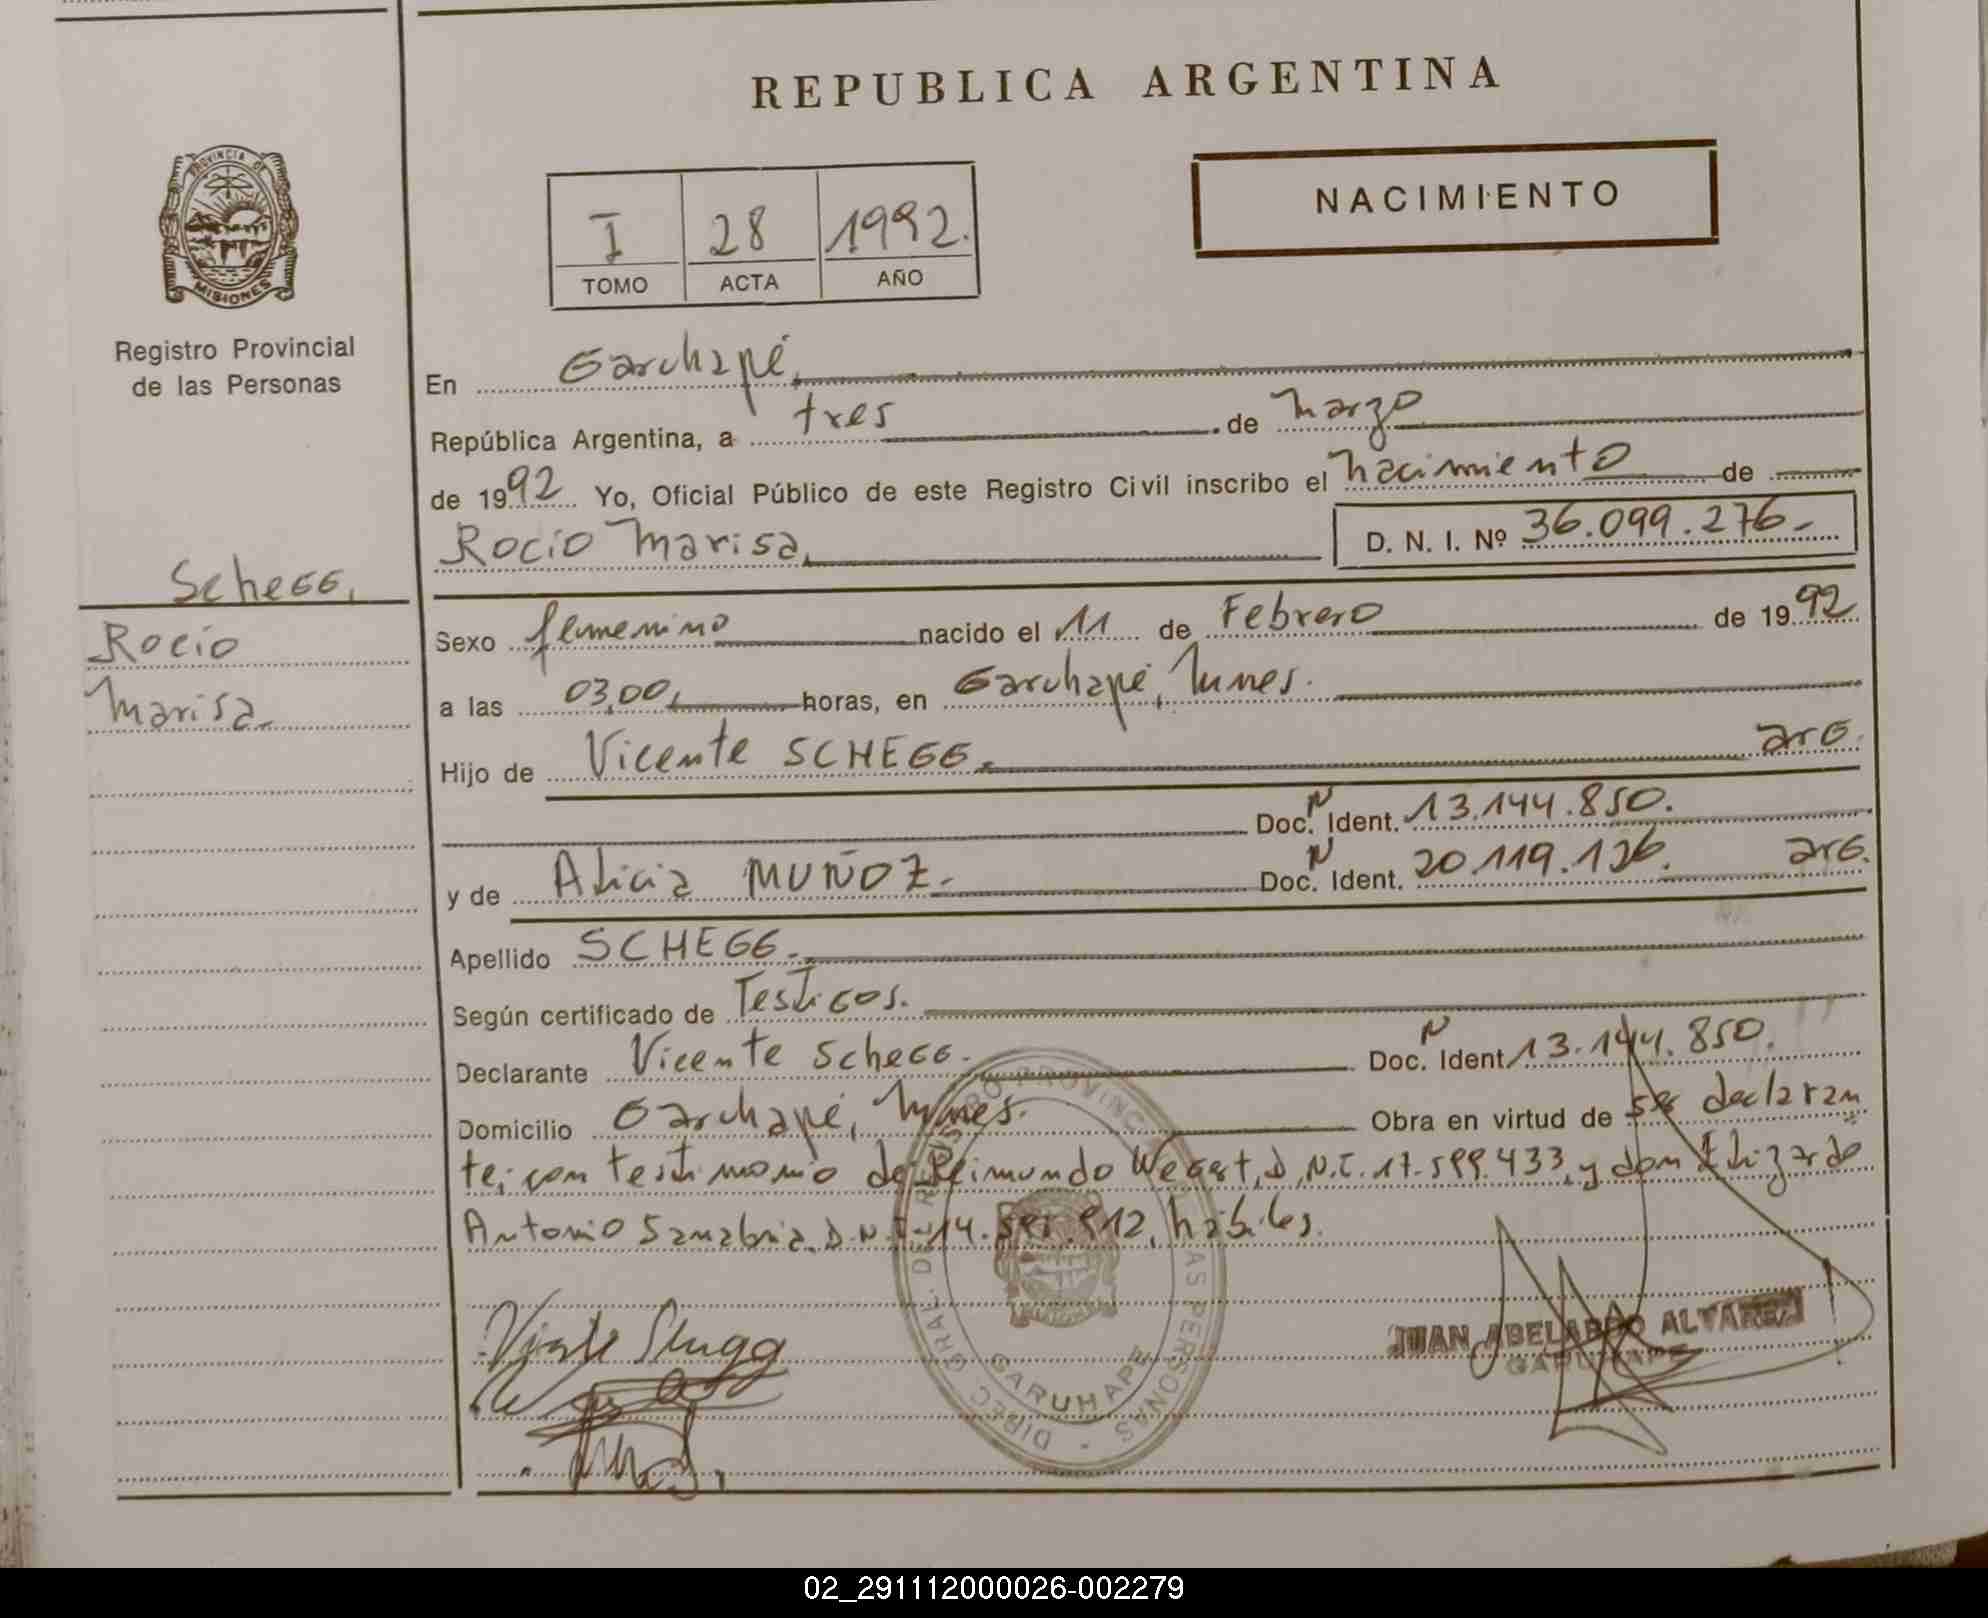 REPUBLICA ARGENTINA
NACIMIENTO
I 28 1992.
TOMO ACTA AÑO
PROVINCIA DE
MISIONES
Registro Provincial
de las Personas
Schegg,
Rocio
Marisa.
En Garuhapé,
República Argentina, a tres de Marzo
de 1992 Yo, Oficial Público de este Registro Civil inscribo el nacimiento de
Rocio Marisa, D. N. I. Nº 36.099.276.-
Sexo femenino nacido el 11 de Febrero de 1992
a las 03,00, horas, en Garuhapé, Mnes.
Hijo de Vicente SCHEGG. arg.
Doc. N Ident. 13.144.850.
y de Alicia MUÑOZ.- Doc. N Ident. 20.119.126. arg.
Apellido SCHEGG.-
Según certificado de Testigos.
Declarante Vicente Schegg. Doc. N Ident. 13.144.850.
Domicilio Garuhapé, Mnes. Obra en virtud de ser declaran
te; con testimonio de Reimundo D.N.I. 17.599.433, y don Elizardo
Antonio Sanabria, D.N.I. 14. 912, hábiles.
DIREC. GRAL. DEL REGISTRO PROVINCIAL DE LAS PERSONAS
GARUHAPE
JUAN ABELARDO ALVAREZ
GARUHAPE
02_291112000026-002279